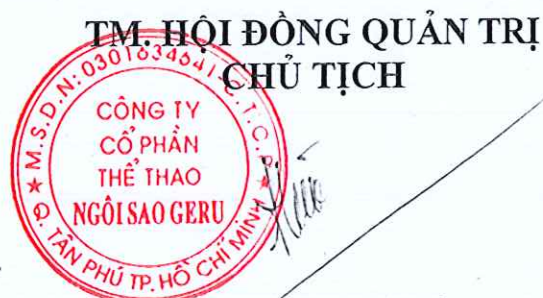 TM. HỘI ĐỒNG QUẢN TRỊ
CHỦ TỊCH
M.S.D.N: 0301634641 - C.T.C.P
CÔNG TY
CỔ PHẦN
THỂ THAO
NGÔI SAO GERU
Q. TÂN PHÚ TP. HỒ CHÍ MINH